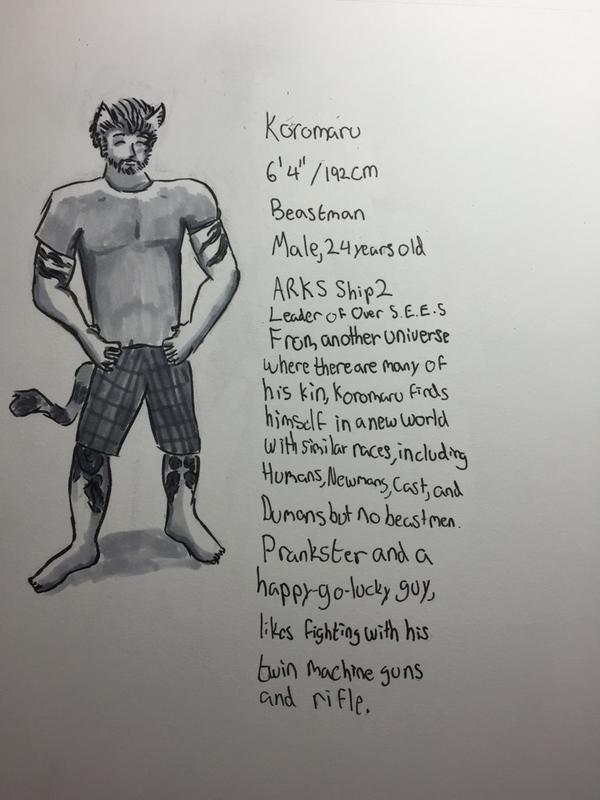 Koromaru
6'4"/192cm
Beastman
Male, 24 years old
ARKS Ship 2
Leader of Over S.E.E.S
From another universe
where there are many of
his kin, Koromaru finds
himself in a new world
with similar races, including
Humans, Newmans, Cast, and
Dumans but no beastmen.
Prankster and a
happy-go-lucky guy,
likes fighting with his
twin machine guns
and rifle.